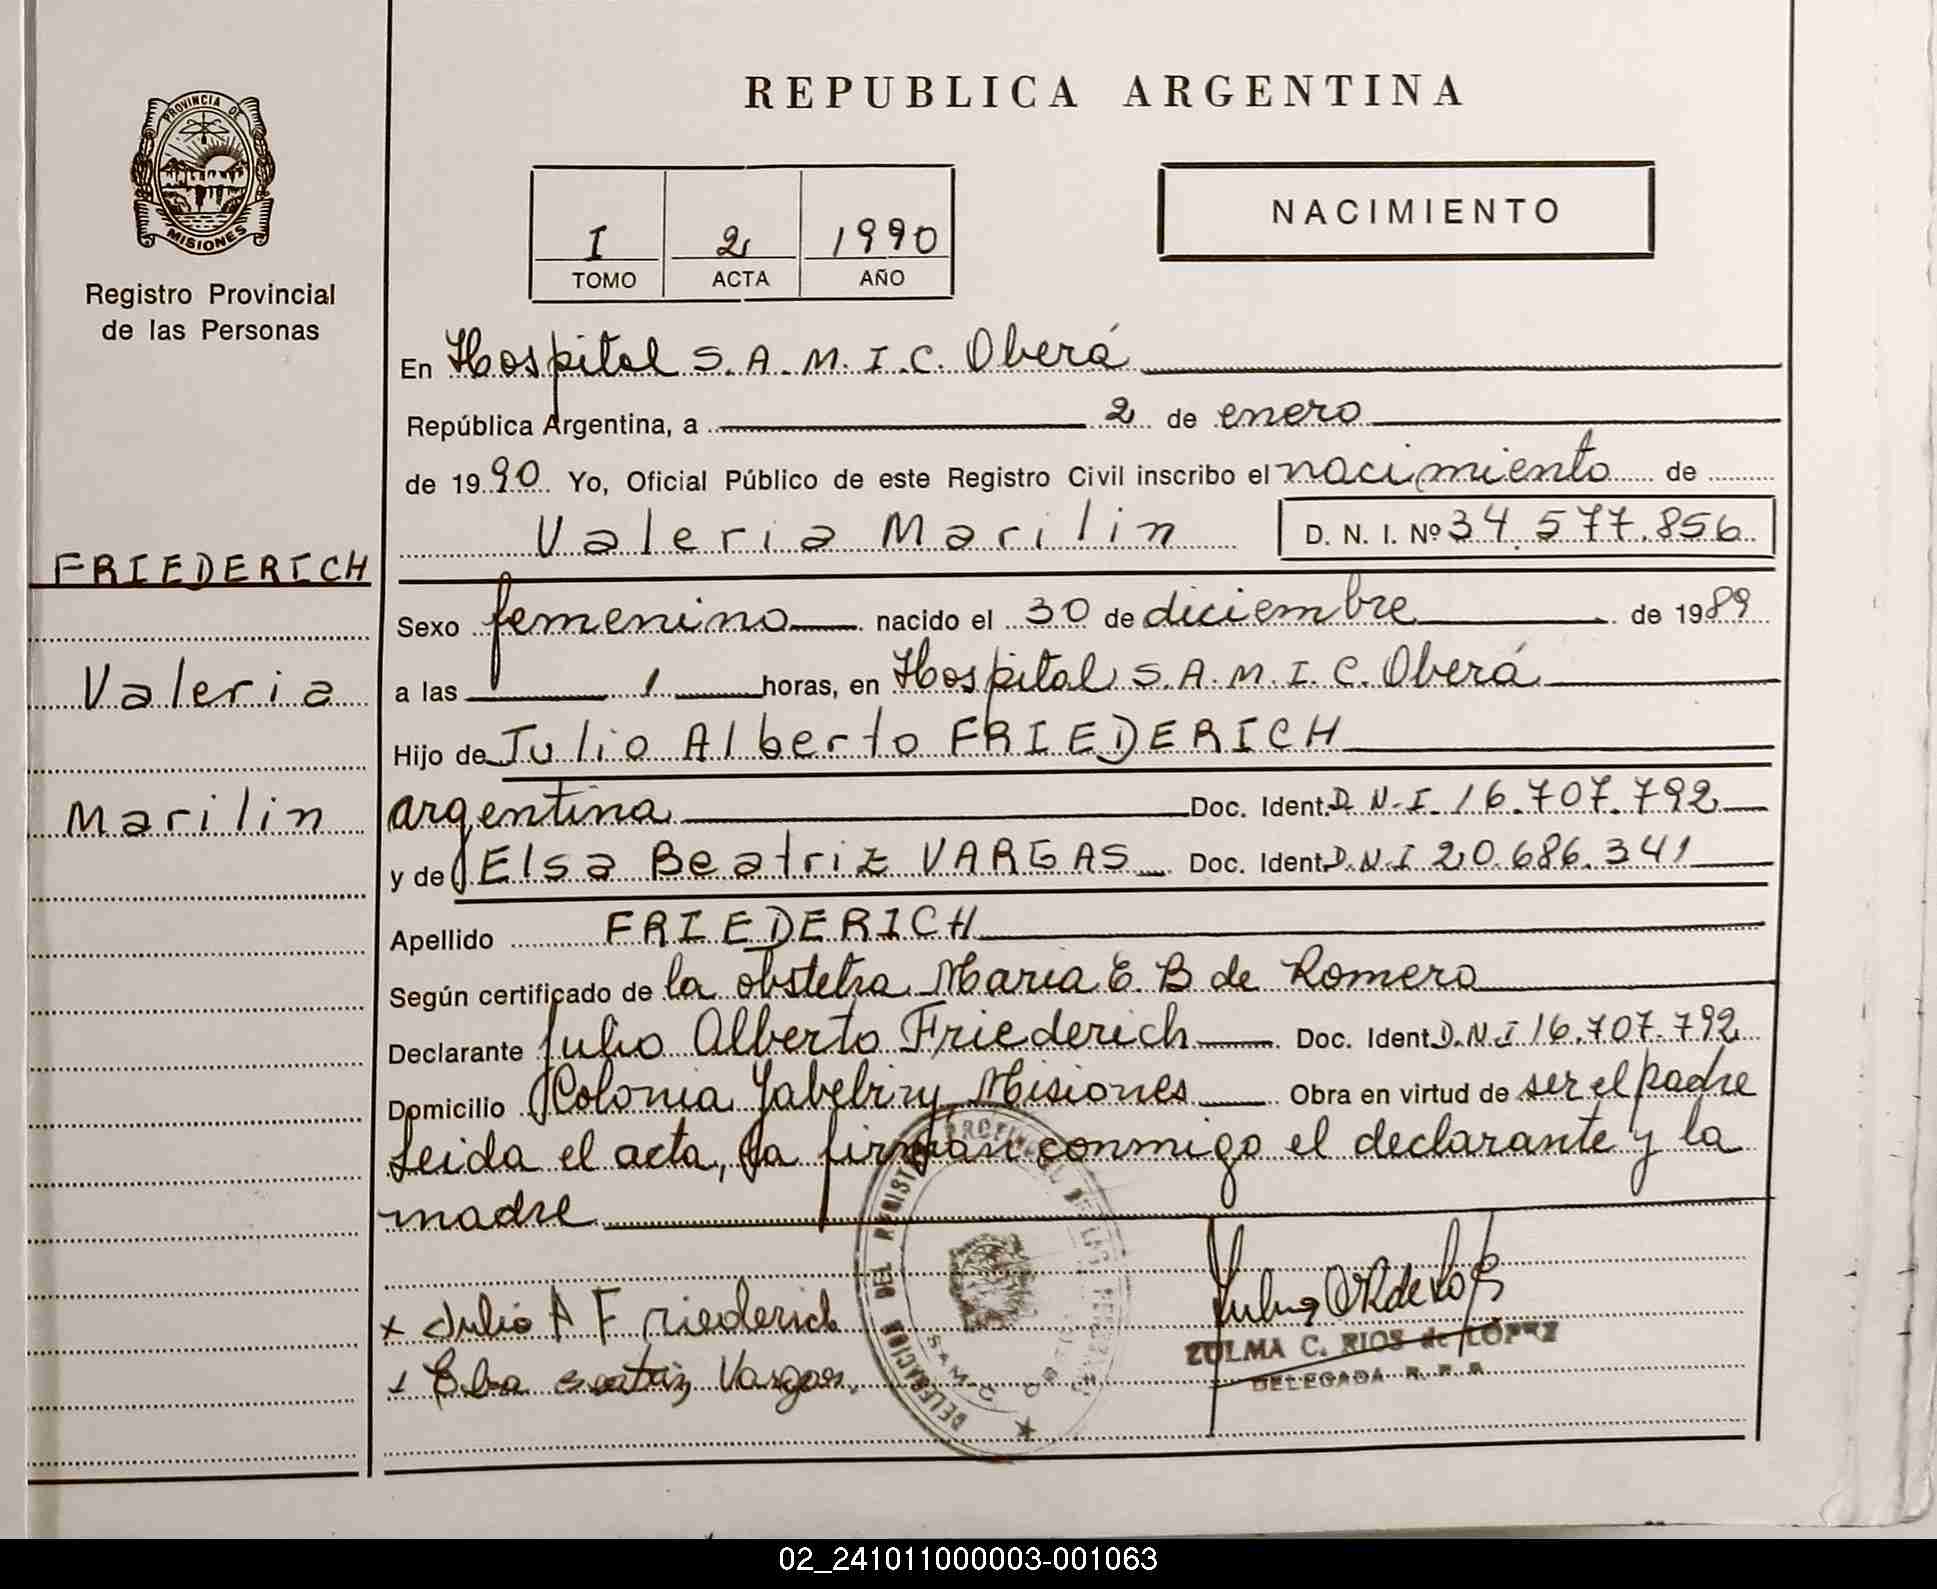 REPUBLICA ARGENTINA
PROVINCIA DE
MISIONES
Registro Provincial
de las Personas
I 2 1990
TOMO ACTA AÑO
NACIMIENTO
En Hospital S.A.M.I.C. Oberá
República Argentina, a 2 de enero
de 1990 Yo, Oficial Público de este Registro Civil inscribo el nacimiento de
Valeria Marilin D. N. I. Nº 34.577.856
FRIEDERICH
Valeria
Marilin
Sexo femenino nacido el 30 de diciembre de 1989
a las 1 horas, en Hospital S.A.M.I.C. Oberá
Hijo de Julio Alberto FRIEDERICH
argentina Doc. Ident. D.N.I. 16.707.792
y de Elsa Beatriz VARGAS Doc. Ident. D.N.I 20.686.341
Apellido FRIEDERICH
Según certificado de la obstetra Maria E. B de Romero
Declarante Julio Alberto Friederich Doc. Ident. D.N.I 16.707.792
Domicilio Colonia Yabebiry Misiones Obra en virtud de ser el padre
Leida el acta, la firman conmigo el declarante y la
madre
x Julio A Friederich
Vargas
DELEGACION DEL REGISTRO PROVINCIAL DE LAS PERSONAS
ZULMA C. RIOS de LOPEZ
DELEGADA R. P. P.
02_241011000003-001063